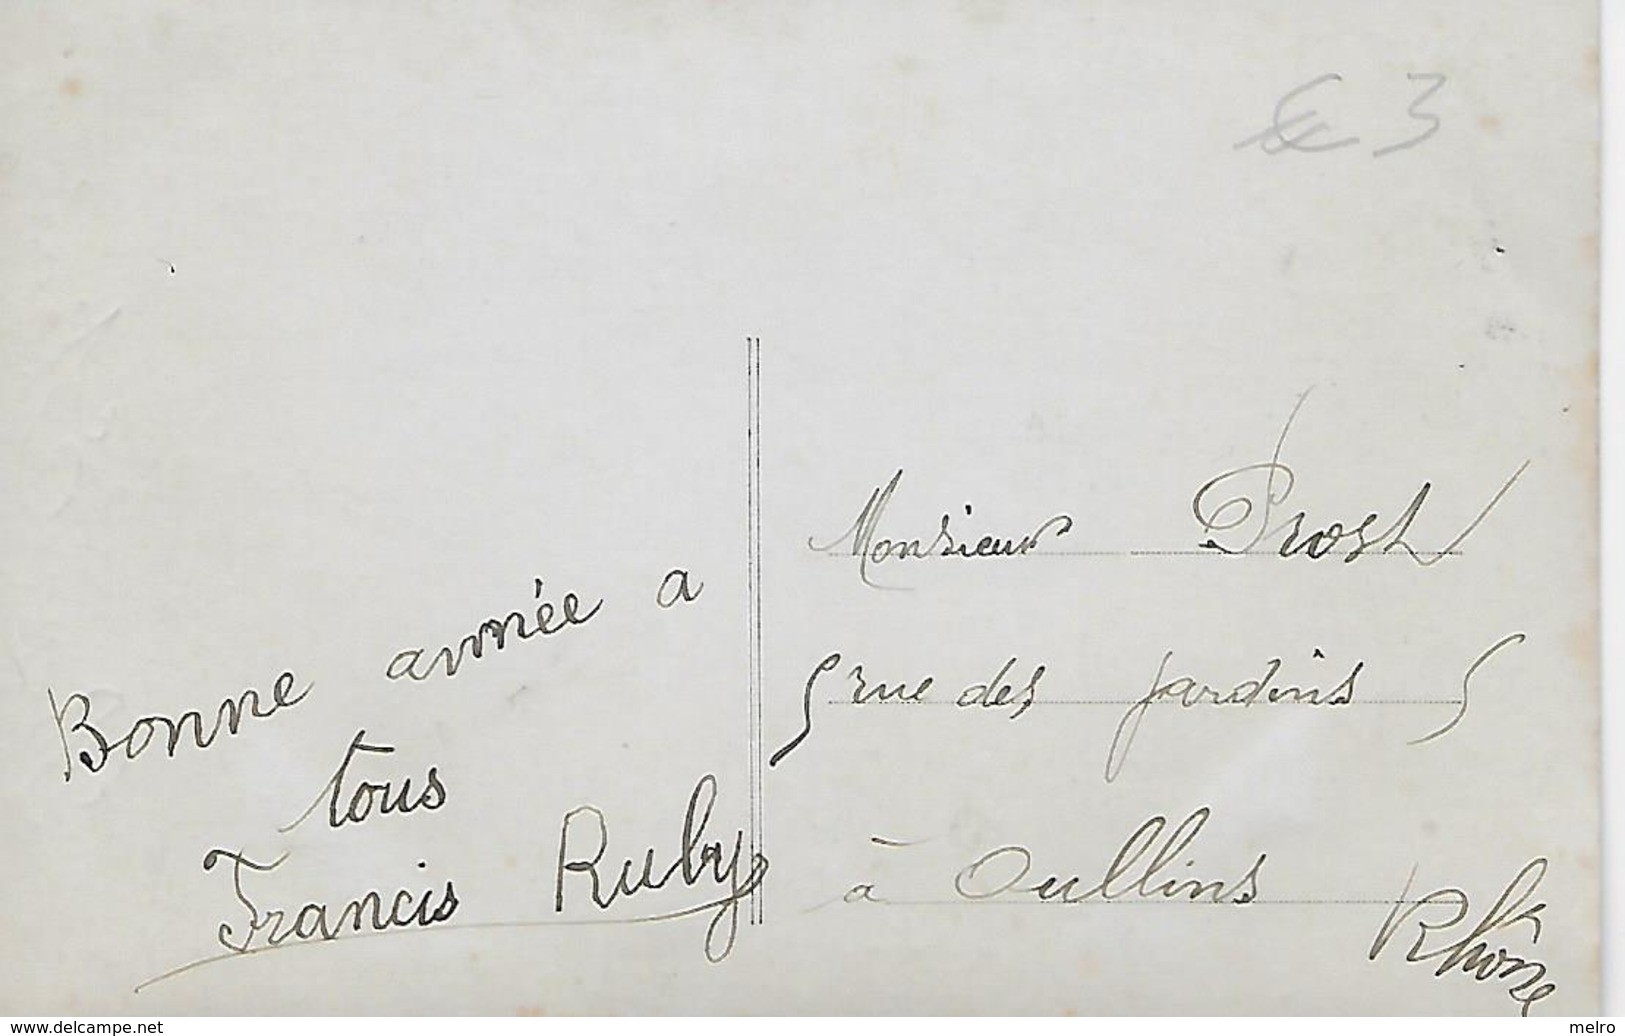 € 3
Bonne année a
tous
Francis Ruby
Monsieur Prost
rue des jardins
à Oullins
Rhône
www.delcampe.net
melro